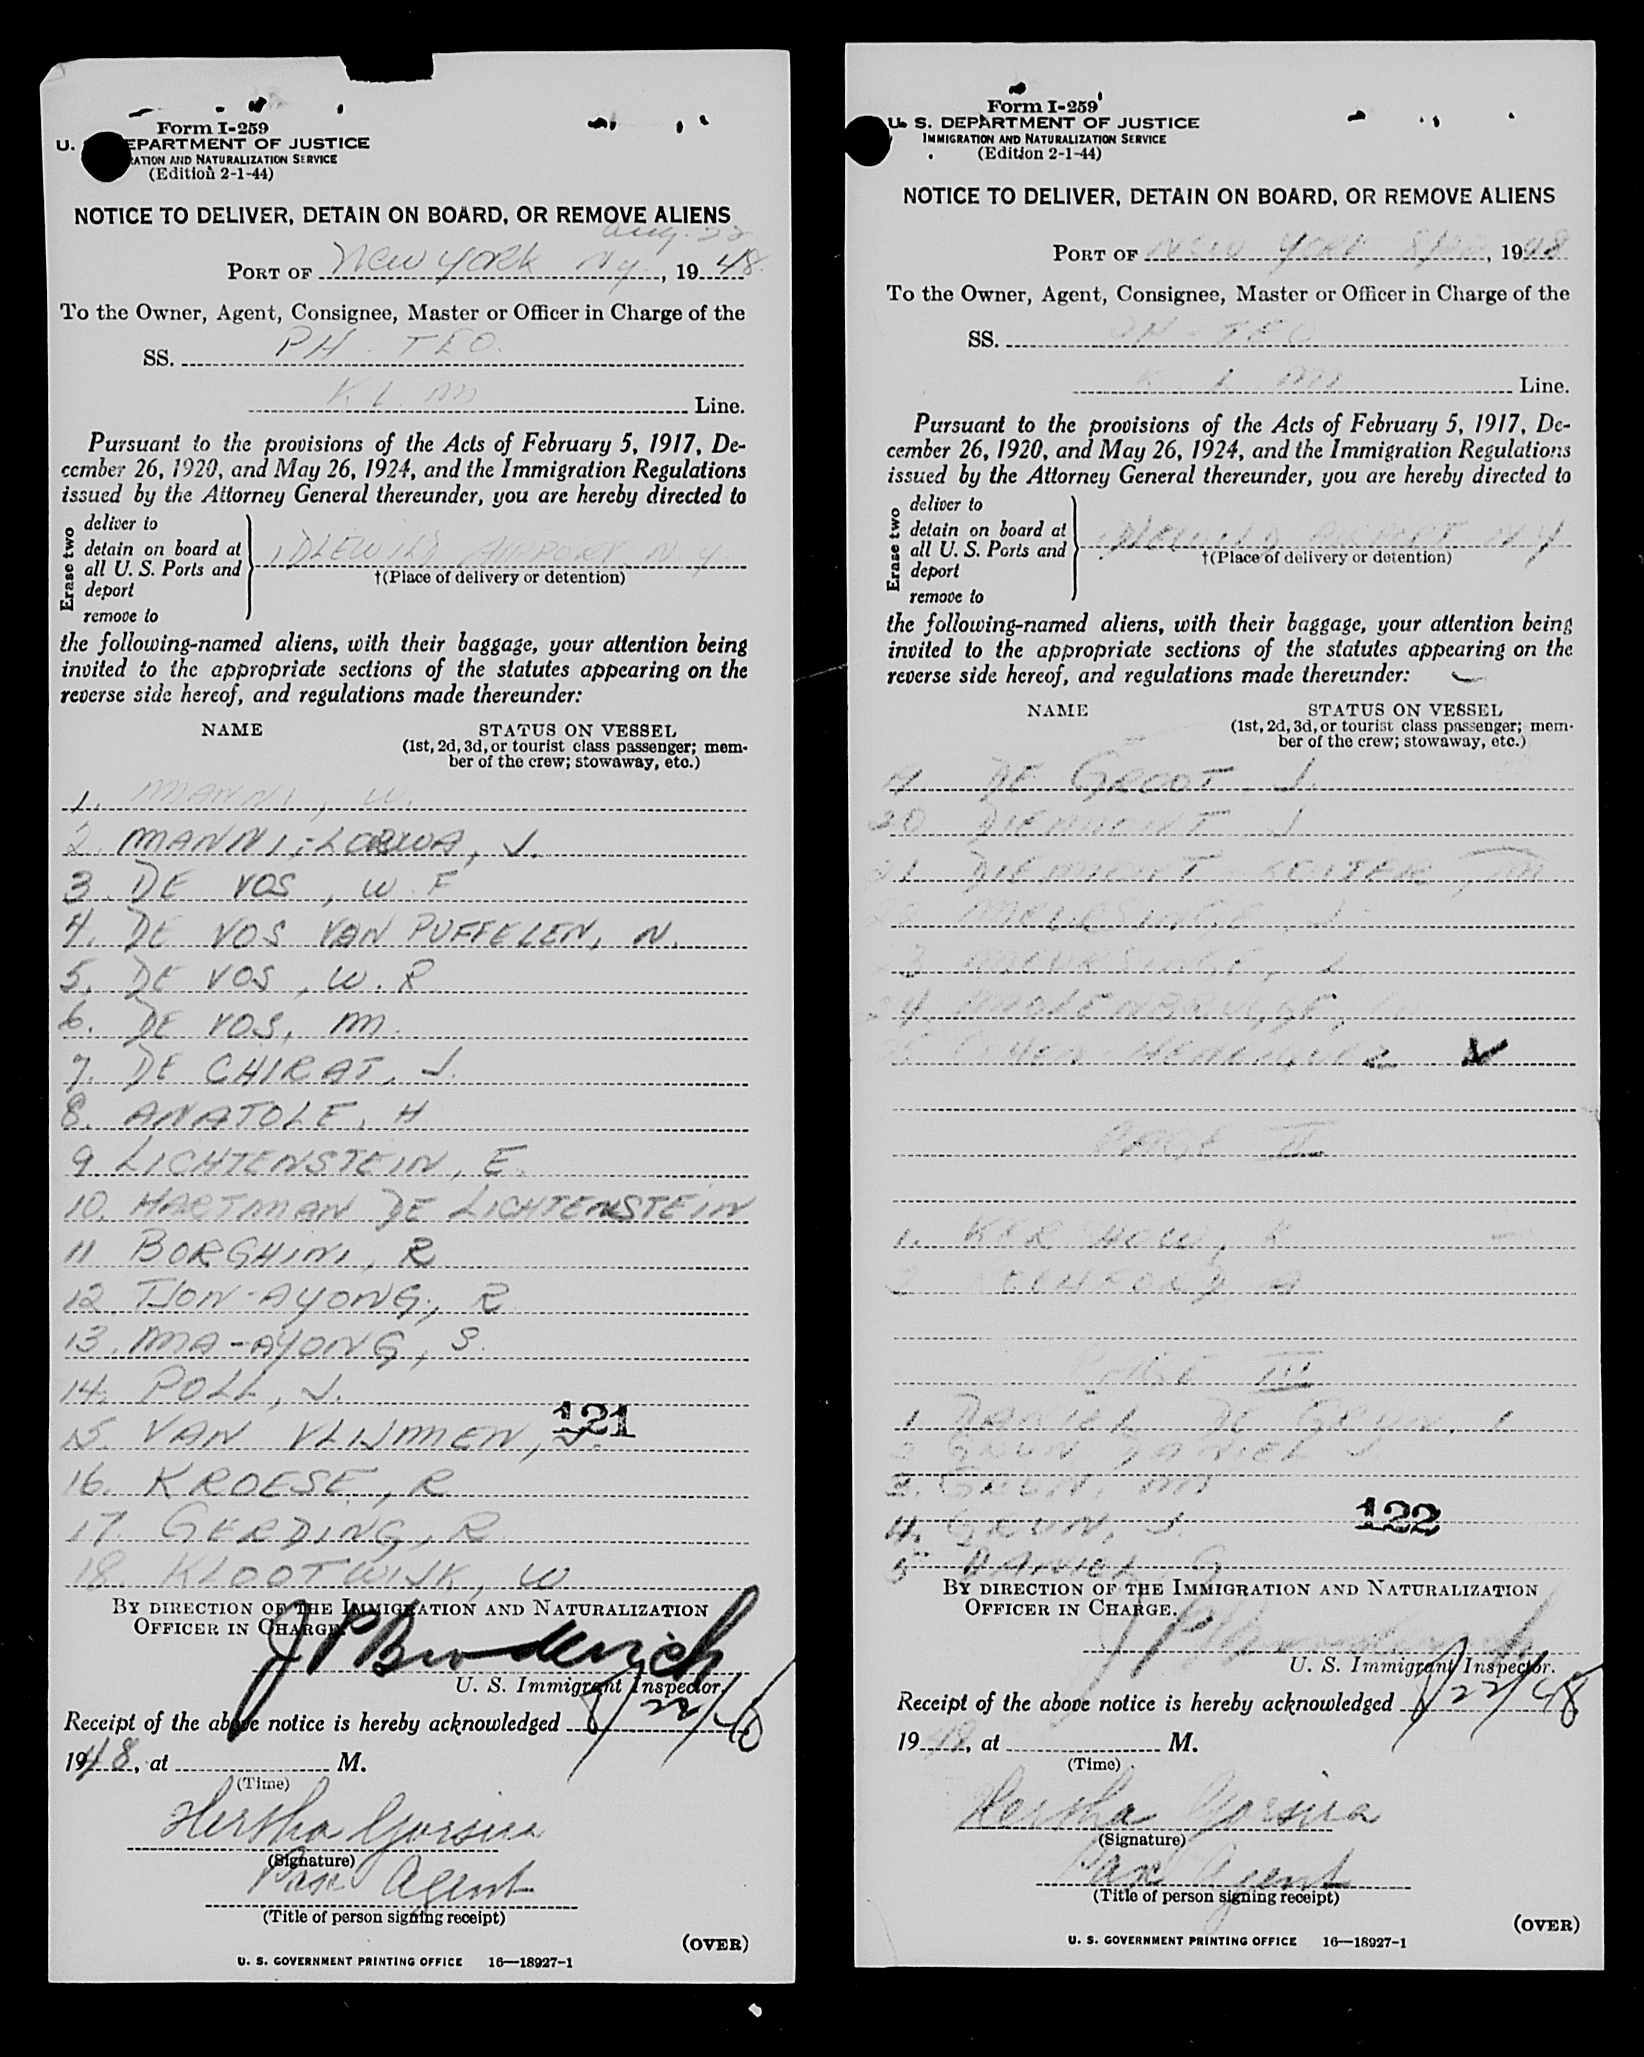 Form I-259
U. EPARTMENT OF JUSTICE
ATION AND NATURALIZATION SERVICE
(Edition 2-1-44)
NOTICE TO DELIVER, DETAIN ON BOARD, OR REMOVE ALIENS
Aug. 22
PORT OF New York N.Y., 1948.
To the Owner, Agent, Consignee, Master or Officer in Charge of the
SS. PH - TEO.
K L M Line.
Pursuant to the provisions of the Acts of February 5, 1917, De-
cember 26, 1920, and May 26, 1924, and the Immigration Regulations
issued by the Attorney General thereunder, you are hereby directed to
Erase two
deliver to
detain on board at
all U. S. Ports and
deport
remove to
IDLEWILD AIRPORT, N.Y.
†(Place of delivery or detention)
the following-named aliens, with their baggage, your attention being
invited to the appropriate sections of the statutes appearing on the
reverse side hereof, and regulations made thereunder:
NAME STATUS ON VESSEL
(1st, 2d, 3d, or tourist class passenger; mem-
ber of the crew; stowaway, etc.)
1. MANNI, W.
2. MANNI, J.
3. DE VOS, W. F
4. DE VOS VAN PUFFELEN, N.
5. DE VOS, W. R
6. DE VOS, M.
7. DE CHIRAT, J.
8. ANATOLE, H
9 LICHTENSTEIN, E.
10. HARTMAN DE LICHTENSTEIN
11 BORGHINI, R
12. TJON-AYONG, R
13. MA-AYONG, S.
14. POLL, J.
15. VAN VLIJMEN, J.
121
16. KROESE, R
17. GERDING, R
18. KLOOTWIJK, W
BY DIRECTION OF THE IMMIGRATION AND NATURALIZATION
OFFICER IN CHARGE.
J P Broderick
U. S. Immigrant Inspector.
Receipt of the above notice is hereby acknowledged 8/22/48
1948, at M.
(Time)
Hertha Gorsira
(Signature)
Pax Agent
(Title of person signing receipt)
(OVER)
U. S. GOVERNMENT PRINTING OFFICE 16—18927-1
Form I-259
U. S. DEPARTMENT OF JUSTICE
IMMIGRATION AND NATURALIZATION SERVICE
(Edition 2-1-44)
NOTICE TO DELIVER, DETAIN ON BOARD, OR REMOVE ALIENS
PORT OF NEW YORK 8/22, 1948
To the Owner, Agent, Consignee, Master or Officer in Charge of the
SS. PH - TEO
K L M Line.
Pursuant to the provisions of the Acts of February 5, 1917, De-
cember 26, 1920, and May 26, 1924, and the Immigration Regulations
issued by the Attorney General thereunder, you are hereby directed to
Erase two
deliver to
detain on board at
all U. S. Ports and
deport
remove to
IDLEWILD AIRPORT N Y
†(Place of delivery or detention)
the following-named aliens, with their baggage, your attention being
invited to the appropriate sections of the statutes appearing on the
reverse side hereof, and regulations made thereunder:
NAME STATUS ON VESSEL
(1st, 2d, 3d, or tourist class passenger; mem-
ber of the crew; stowaway, etc.)
19 DE GROOT, J.
20 DIEMONT J
21 DIEMONT M
22 MEURSINGE, J.
23 MEURSINGE,
24 MOLENBRUGGE,
25
PAGE II
1. KERSHOW, K
2 A
PAGE III
1 DANIEL DE GRUN, L
2 GRUN DANIEL J
3. GRUN, M
4. GRUN, J.
122
5 DANIEL, G
BY DIRECTION OF THE IMMIGRATION AND NATURALIZATION
OFFICER IN CHARGE.
J P Broderick
U. S. Immigrant Inspector.
Receipt of the above notice is hereby acknowledged 8/22/48
1948, at M.
(Time)
Hertha Gorsira
(Signature)
Pax Agent
(Title of person signing receipt)
(OVER)
U. S. GOVERNMENT PRINTING OFFICE 16—18927-1